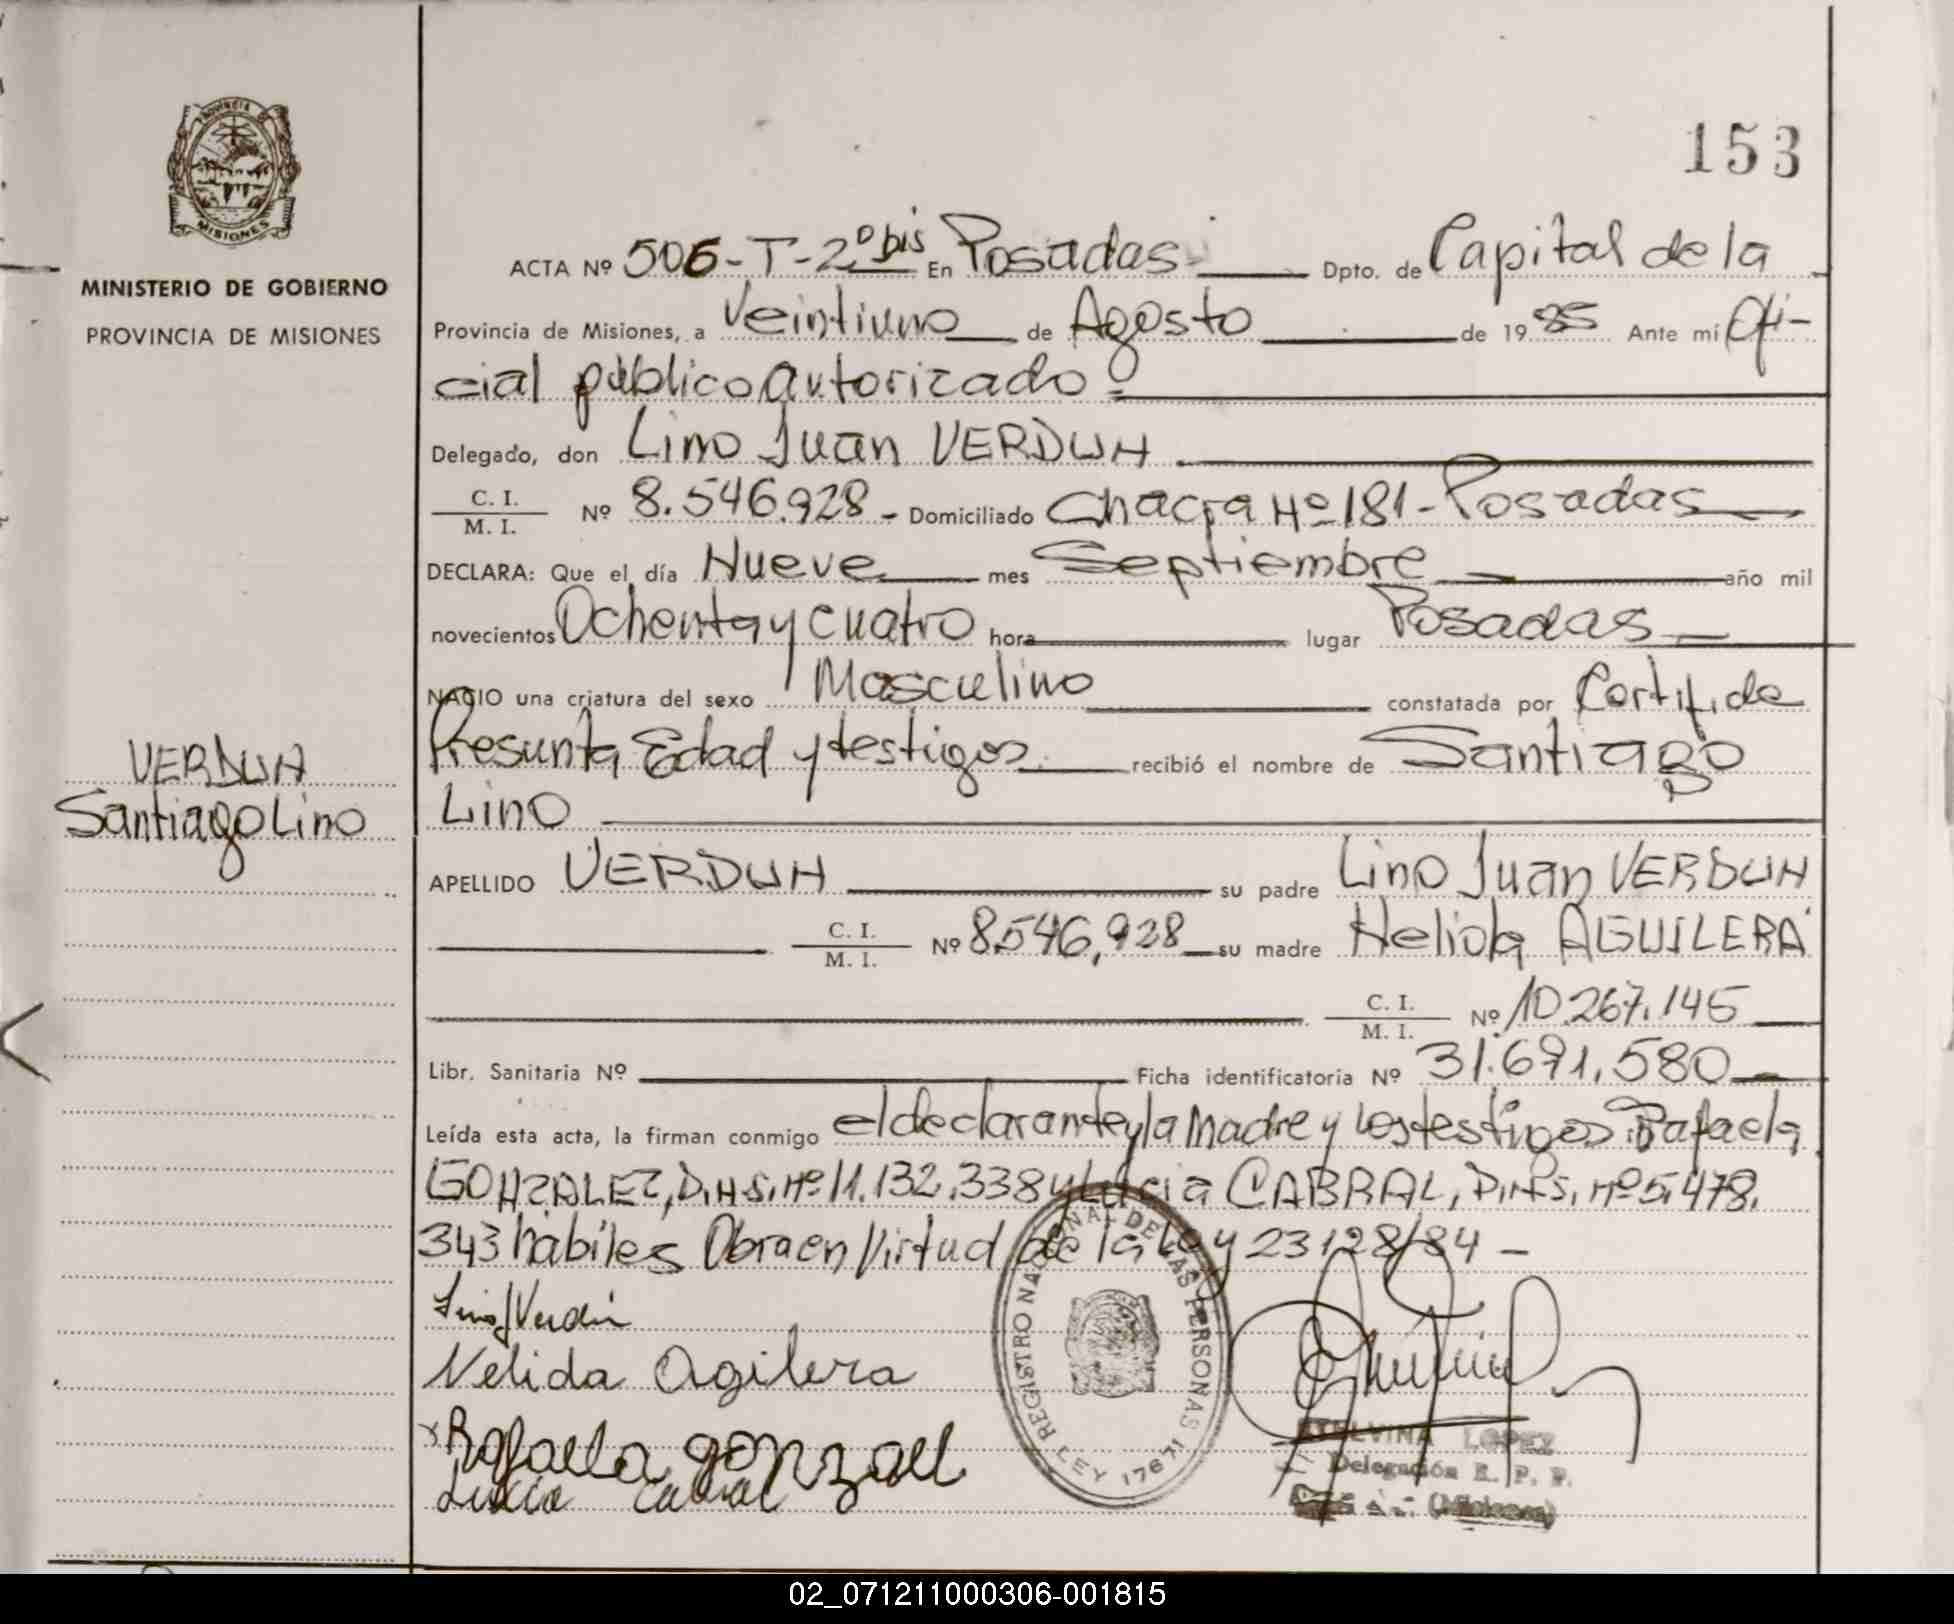 153
PROVINCIA DE
MISIONES
MINISTERIO DE GOBIERNO
PROVINCIA DE MISIONES
ACTA Nº 506-T-2º bis En Posadas Dpto. de Capital de la
Provincia de Misiones, a Veintiuno de Agosto de 1985 Ante mí Ofi-
cial público autorizado
Delegado, don Lino Juan VERDUN
C. I.
M. I. Nº 8.546.928- Domiciliado Chacra Nº 181-Posadas
DECLARA: Que el día Nueve mes Septiembre año mil
novecientos Ochenta y cuatro hora lugar Posadas
NACIO una criatura del sexo Masculino constatada por Certif. de
Presunta Edad y testigos. recibió el nombre de Santiago
Lino
VERDUN
Santiago Lino
APELLIDO VERDUN su padre Lino Juan VERDUN
C. I.
M. I. Nº 8.546.928 su madre Nelida AGUILERA
C. I.
M. I. Nº 10.267.145
Libr. Sanitaria Nº Ficha identificatoria Nº 31.691.580
Leída esta acta, la firman conmigo el declarante y la Madre y los testigos Rafaela
GONZALEZ, D.N.S. Nº 11.132.338 y Lucia CABRAL, Nº 5.478.
343 habiles Obra en Virtud de la Ley 23128/84 -
Lino J Verdún
Nelida Agilera
Rafaela gonzall
Lucia Cabral
REGISTRO NACIONAL DE LAS PERSONAS
LEY 17671
LOPEZ
Delegación R. P. P.
(Misiones)
02_071211000306-001815